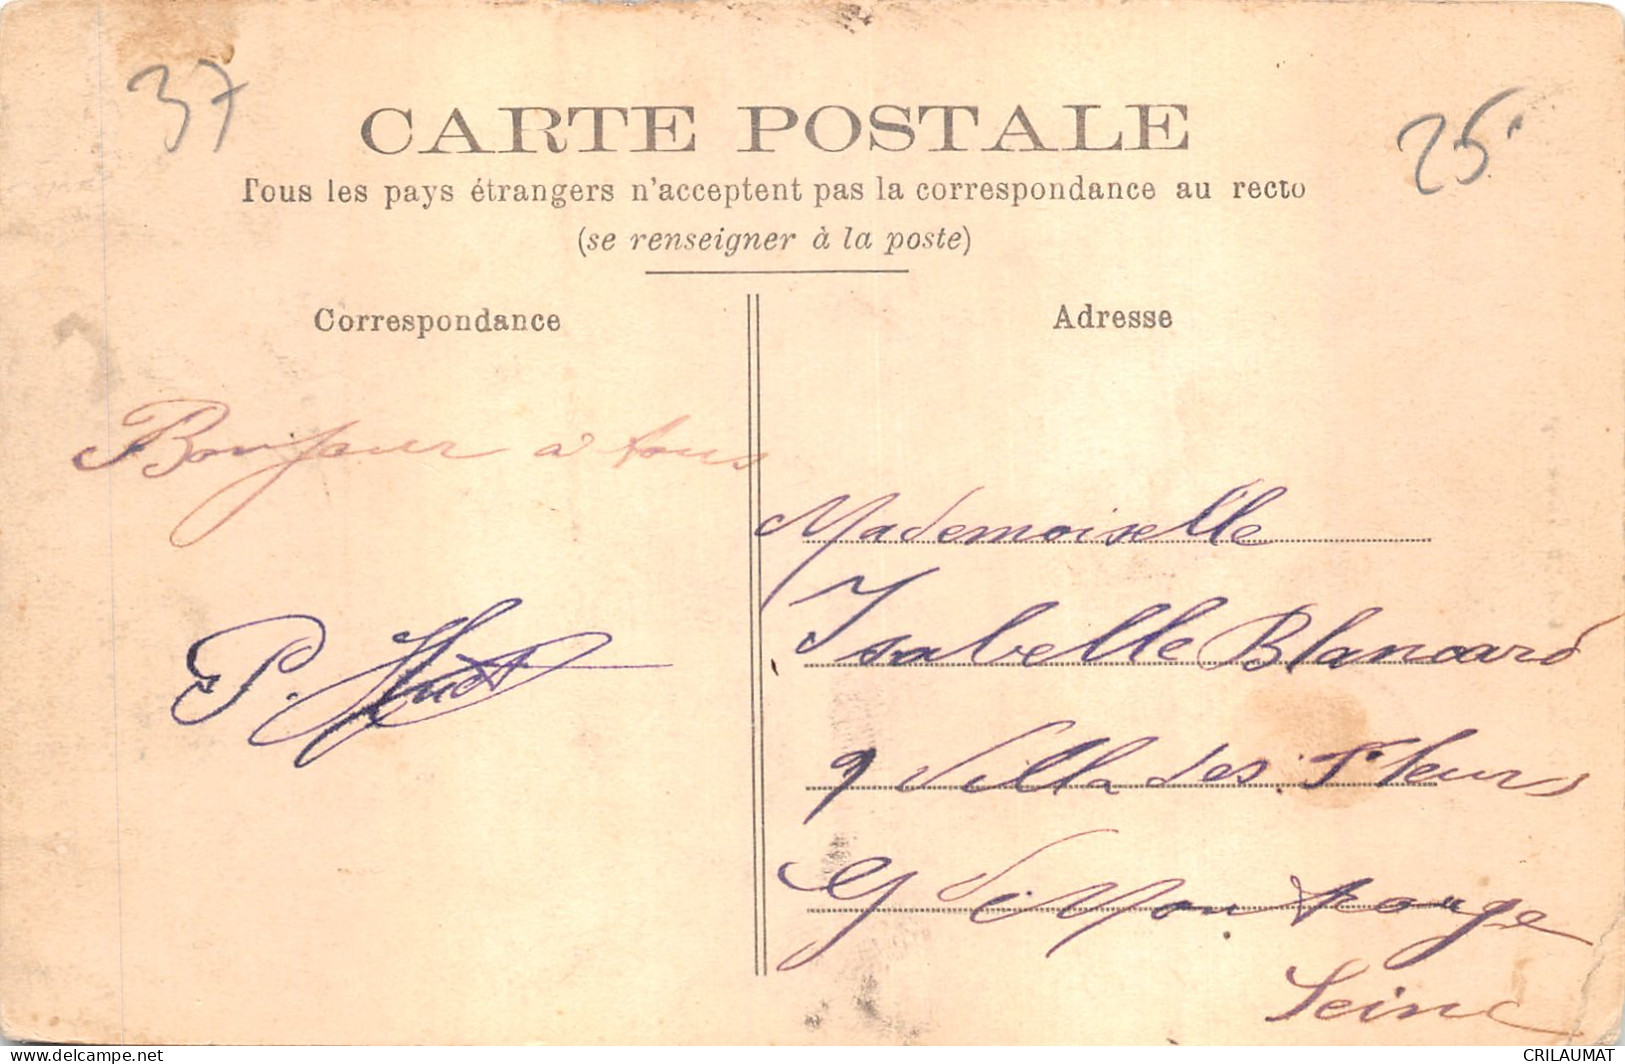 37
25
CARTE POSTALE
Tous les pays étrangers n'acceptent pas la correspondance au recto
(se renseigner à la poste)
Correspondance
Adresse
Bonjour à tous
P. Huet
Mademoiselle
Isabelle Blancard
9 Villa des Fleurs
Gd Montrouge
Seine
CRILAUMAT